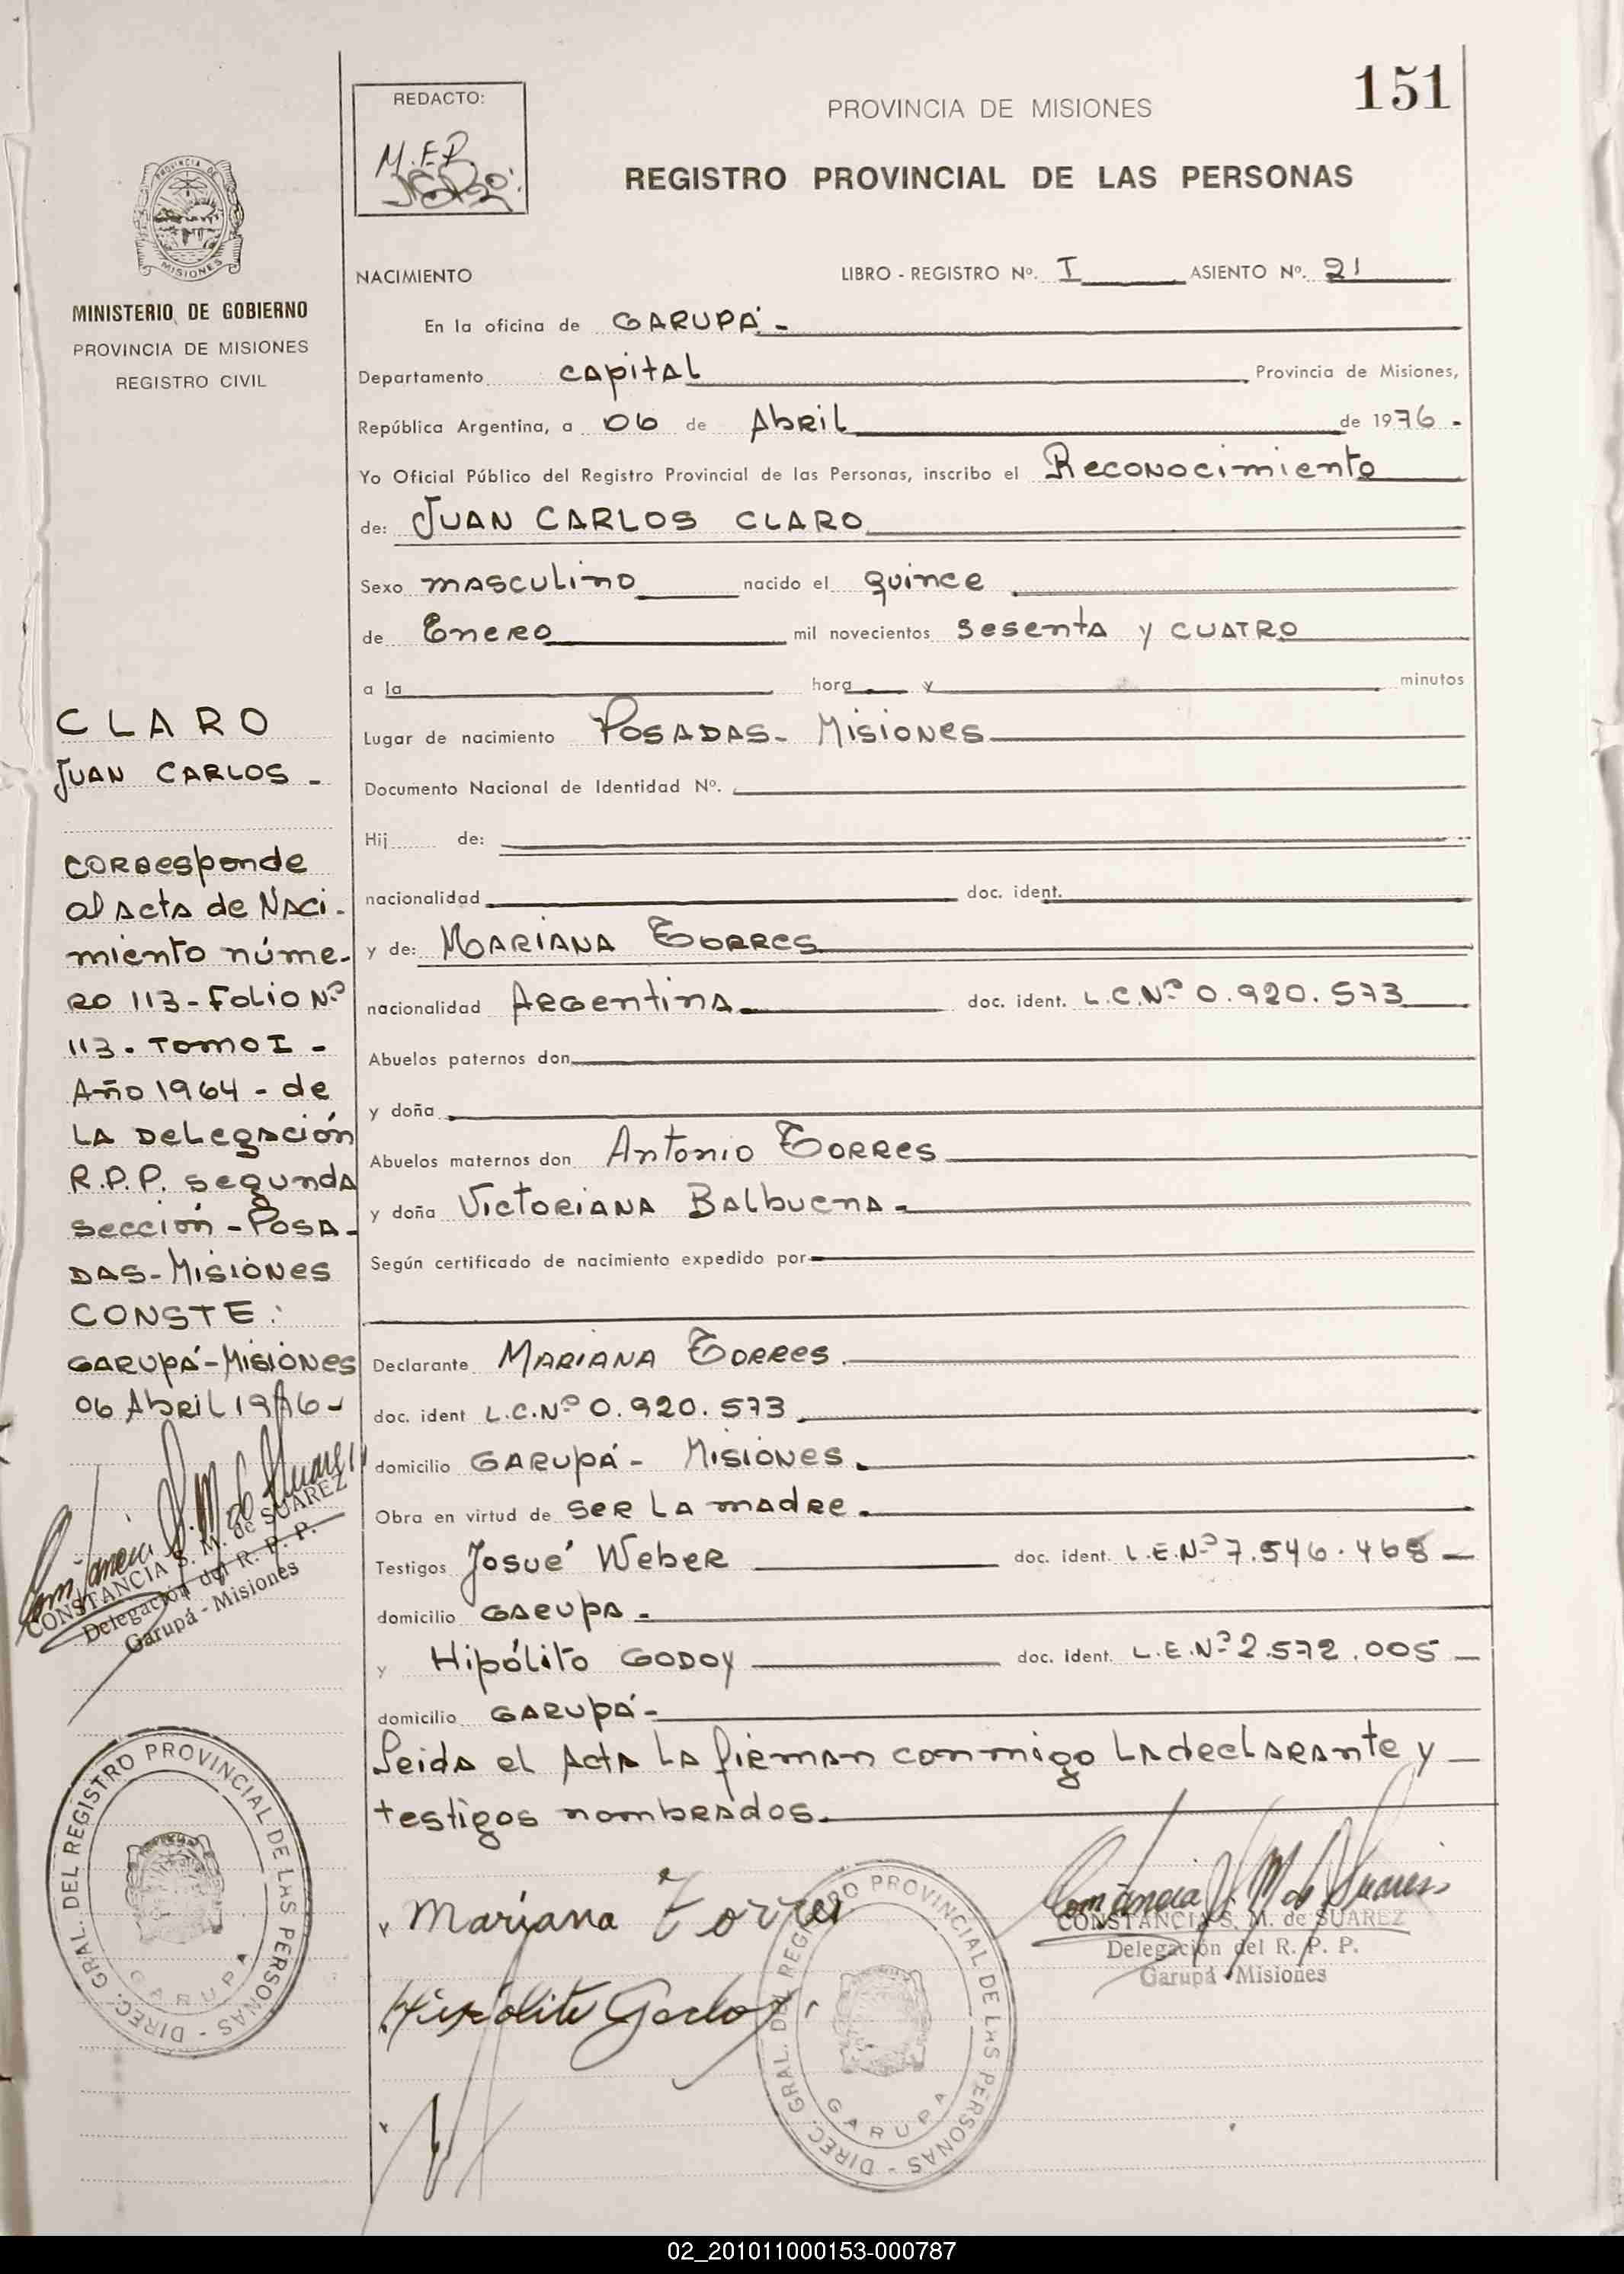 151
REDACTO:
M.E.R
PROVINCIA DE MISIONES
REGISTRO PROVINCIAL DE LAS PERSONAS
PROVINCIA DE
MISIONES
MINISTERIO DE GOBIERNO
PROVINCIA DE MISIONES
REGISTRO CIVIL
NACIMIENTO LIBRO - REGISTRO Nº. I ASIENTO Nº. 21
En la oficina de GARUPÁ -
Departamento capital Provincia de Misiones,
República Argentina, a 06 de Abril de 1976 -
Yo Oficial Público del Registro Provincial de las Personas, inscribo el Reconocimiento
de: JUAN CARLOS CLARO
Sexo masculino nacido el quince
de Enero mil novecientos sesenta y CUATRO
a la hora y minutos
Lugar de nacimiento POSADAS - Misiones
Documento Nacional de Identidad Nº.
Hij de:
nacionalidad doc. ident.
y de: MARIANA TORRES
nacionalidad Argentina doc. ident. L.C.Nº 0.920.573
Abuelos paternos don
y doña
Abuelos maternos don Antonio TORRES
y doña VICTORIANA BALbuena -
Según certificado de nacimiento expedido por
Declarante MARIANA TORRES.
doc. ident L.C.Nº 0.920.573
domicilio GARUPÁ - Misiones.
Obra en virtud de ser la madre.
Testigos Josué Weber doc. ident. L.E.Nº 7.546.468 -
domicilio GARUPA -
y Hipólito GODOY doc. ident. L.E.Nº 2.572.005 -
domicilio GARUPÁ -
Leida el Acta la firman conmigo la declarante y
testigos nombrados.
CLARO
JUAN CARLOS -
corresponde
al acta de Naci-
miento núme-
ro 113 - Folio Nº
113 - TOMO I -
Año 1964 - de
la Delegación
R.P.P. segunda
sección - Posa-
das - Misiones
CONSTE:
GARUPÁ - Misiones
06 Abril 1976 -
Constancia S. M. de Suarez
CONSTANCIA S. M. de SUAREZ
Delegación del R. P. P.
Garupá - Misiones
DIREC. GRAL. DEL REGISTRO PROVINCIAL DE LAS PERSONAS -
GARUPA
Mariana Torres
Hipólito Godoy
DIREC. GRAL. DEL REGISTRO PROVINCIAL DE LAS PERSONAS -
GARUPA
Constancia S. M. de Suarez
CONSTANCIA S. M. de SUAREZ
Delegación del R. P. P.
Garupá - Misiones
02_201011000153-000787